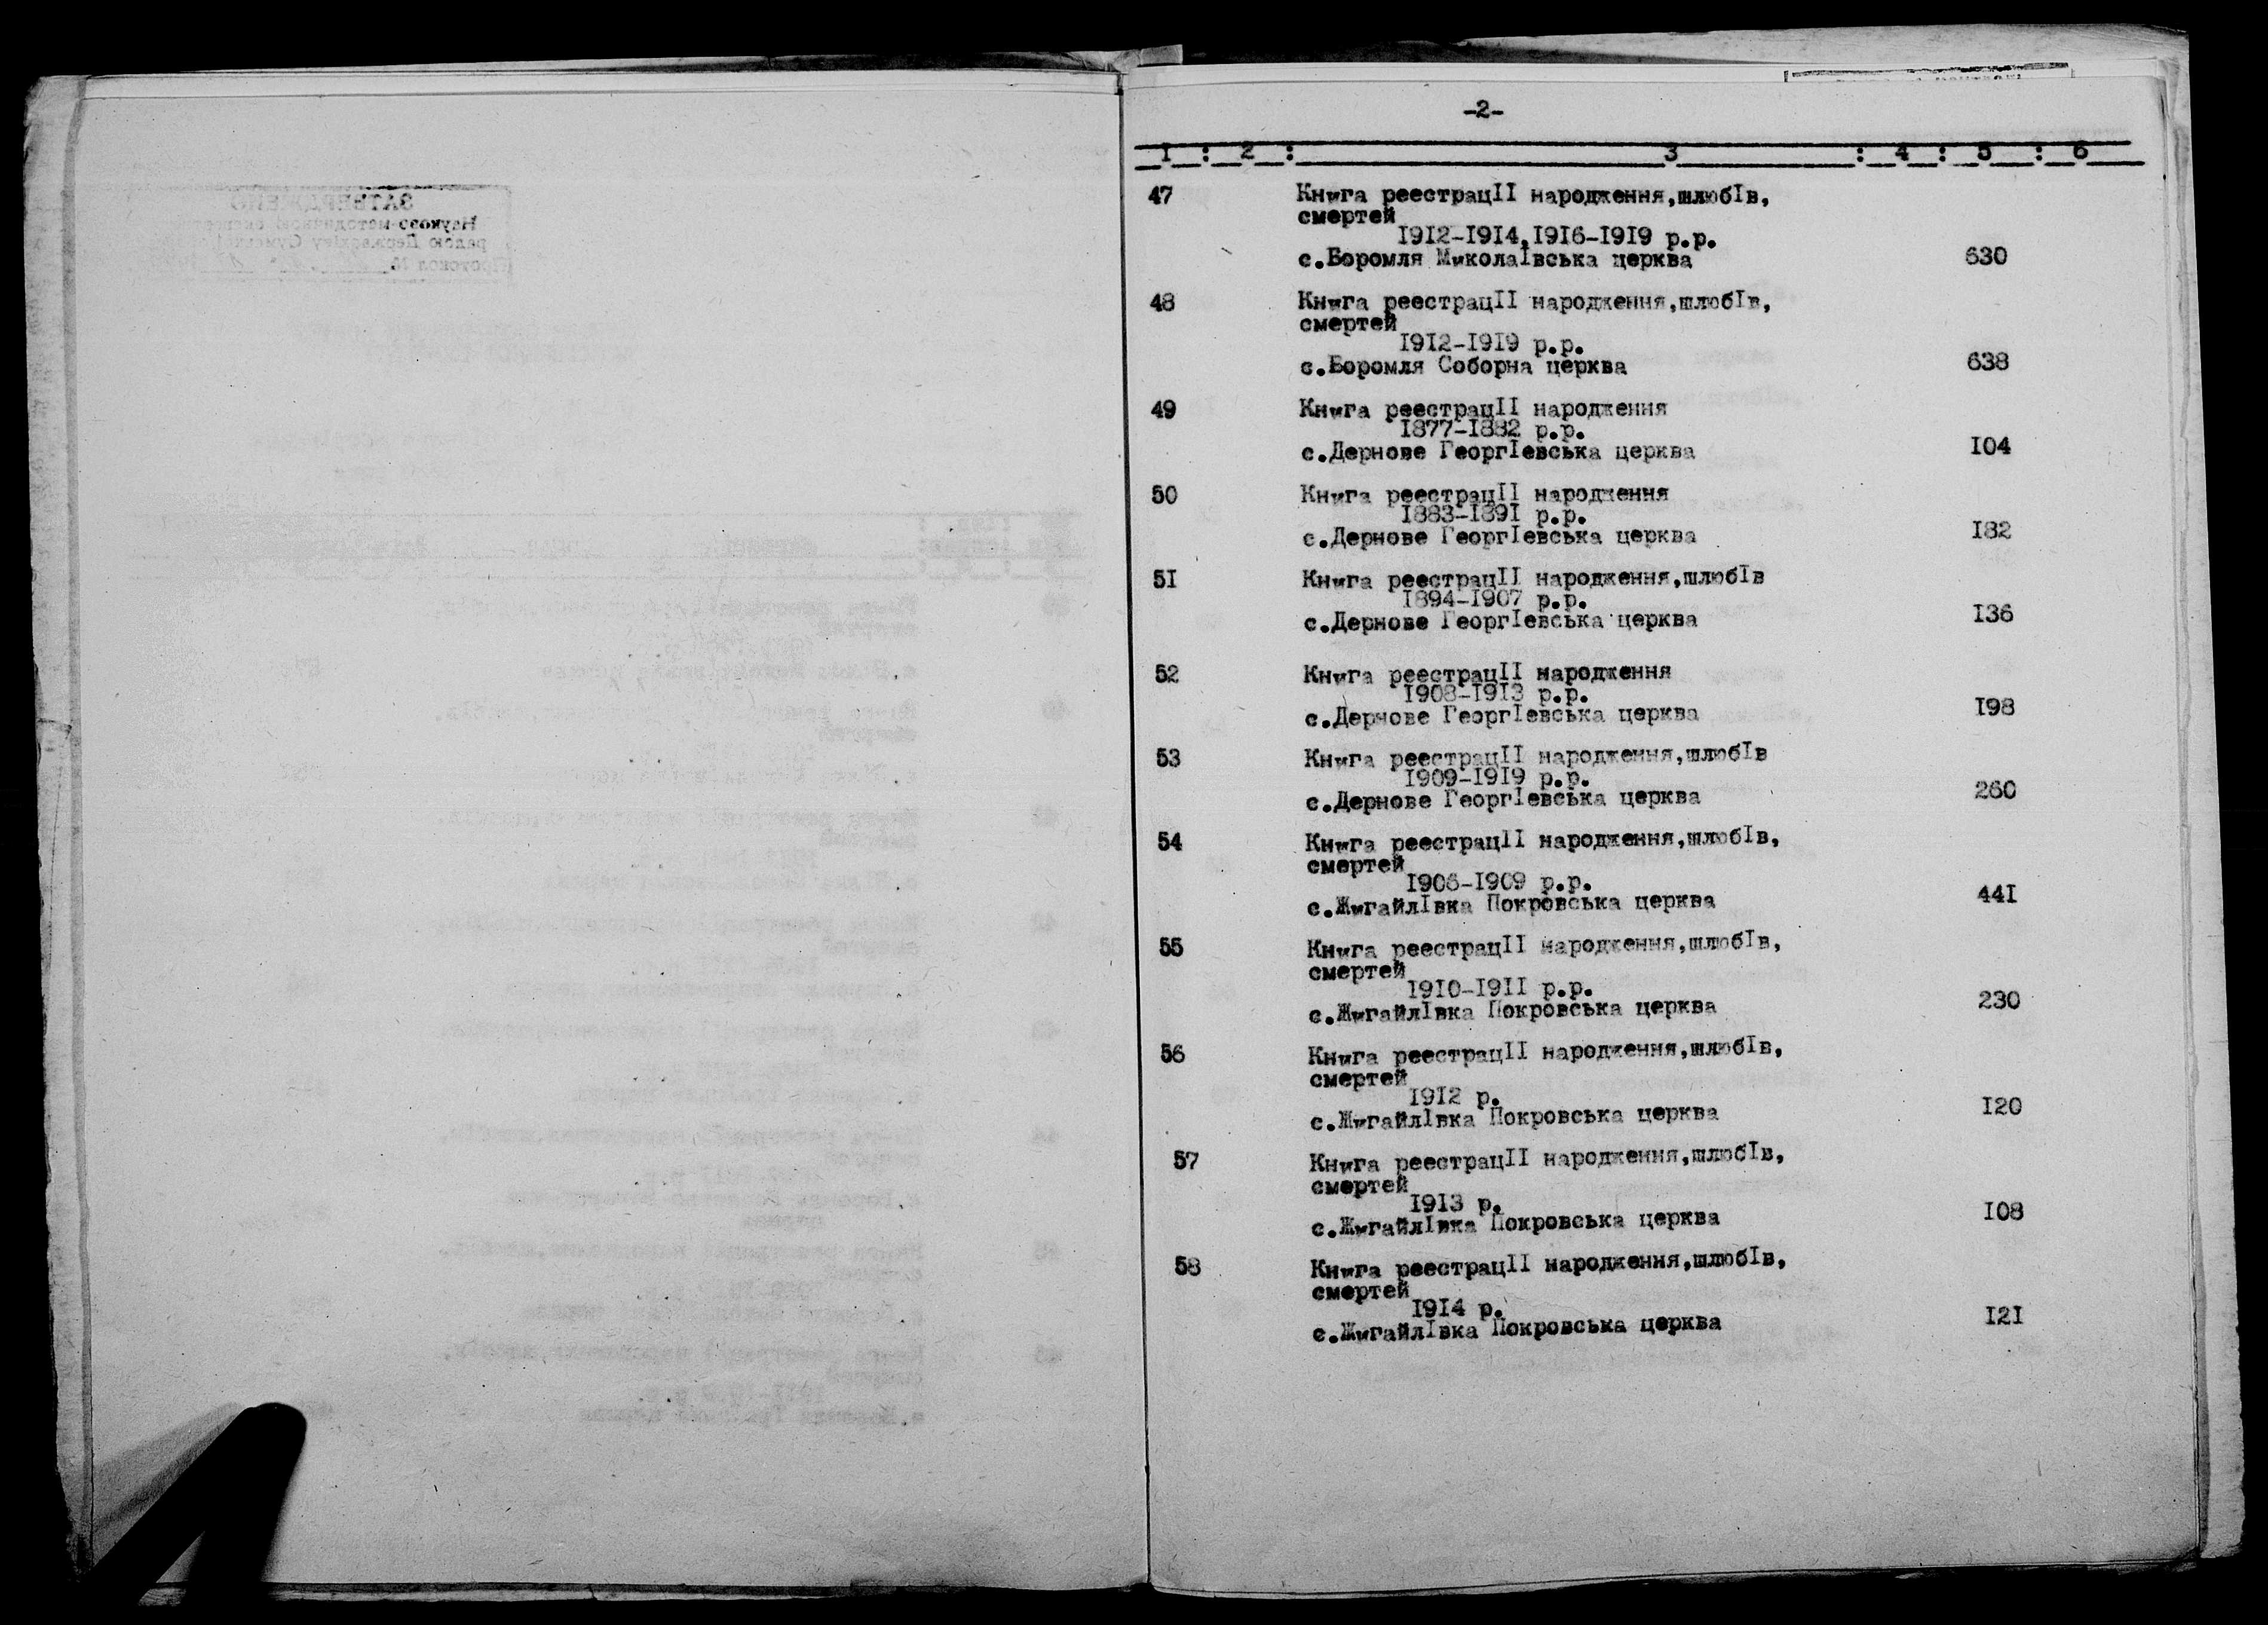 -2-
I : 2 : 3 : 4 : 5 : 6
47 Книга реестрацII народження,шлюбIв,
смертей
I9I2-I9I4,I9I6-I9I9 р.р.
с.Боромля МиколаIвська церква 630
48 Книга реестрацII народження,шлюбIв,
смертей
I9I2-I9I9 р.р.
с.Боромля Соборна церква 638
49 Книга реестрацII народження
I877-I882 р.р.
с.Дернове ГеоргIевська церква I04
50 Книга реестрацII народження
I883-I89I р.р.
с.Дернове ГеоргIевська церква I82
5I Книга реестрацII народження,шлюбIв
I894-I907 р.р.
с.Дернове ГеоргIевська церква I36
52 Книга реестрацII народження
I908-I9I3 р.р.
с.Дернове ГеоргIевська церква I98
53 Книга реестрацII народження,шлюбIв
I909-I9I9 р.р.
с.Дернове ГеоргIевська церква 260
54 Книга реестрацII народження,шлюбIв,
смертей
I906-I909 р.р.
с.ЖигайлIвка Покровська церква 44I
55 Книга реестрацII народження,шлюбIв,
смертей
I9I0-I9II р.р.
с.ЖигайлIвка Покровська церква 230
56 Книга реестрацII народження,шлюбIв,
смертей
I9I2 р.
с.ЖигайлIвка Покровська церква I20
57 Книга реестрацII народження,шлюбIв,
смертей
I9I3 р.
с.ЖигайлIвка Покровська церква I08
58 Книга реестрацII народження,шлюбIв,
смертей
I9I4 р.
с.ЖигайлIвка Покровська церква I2I